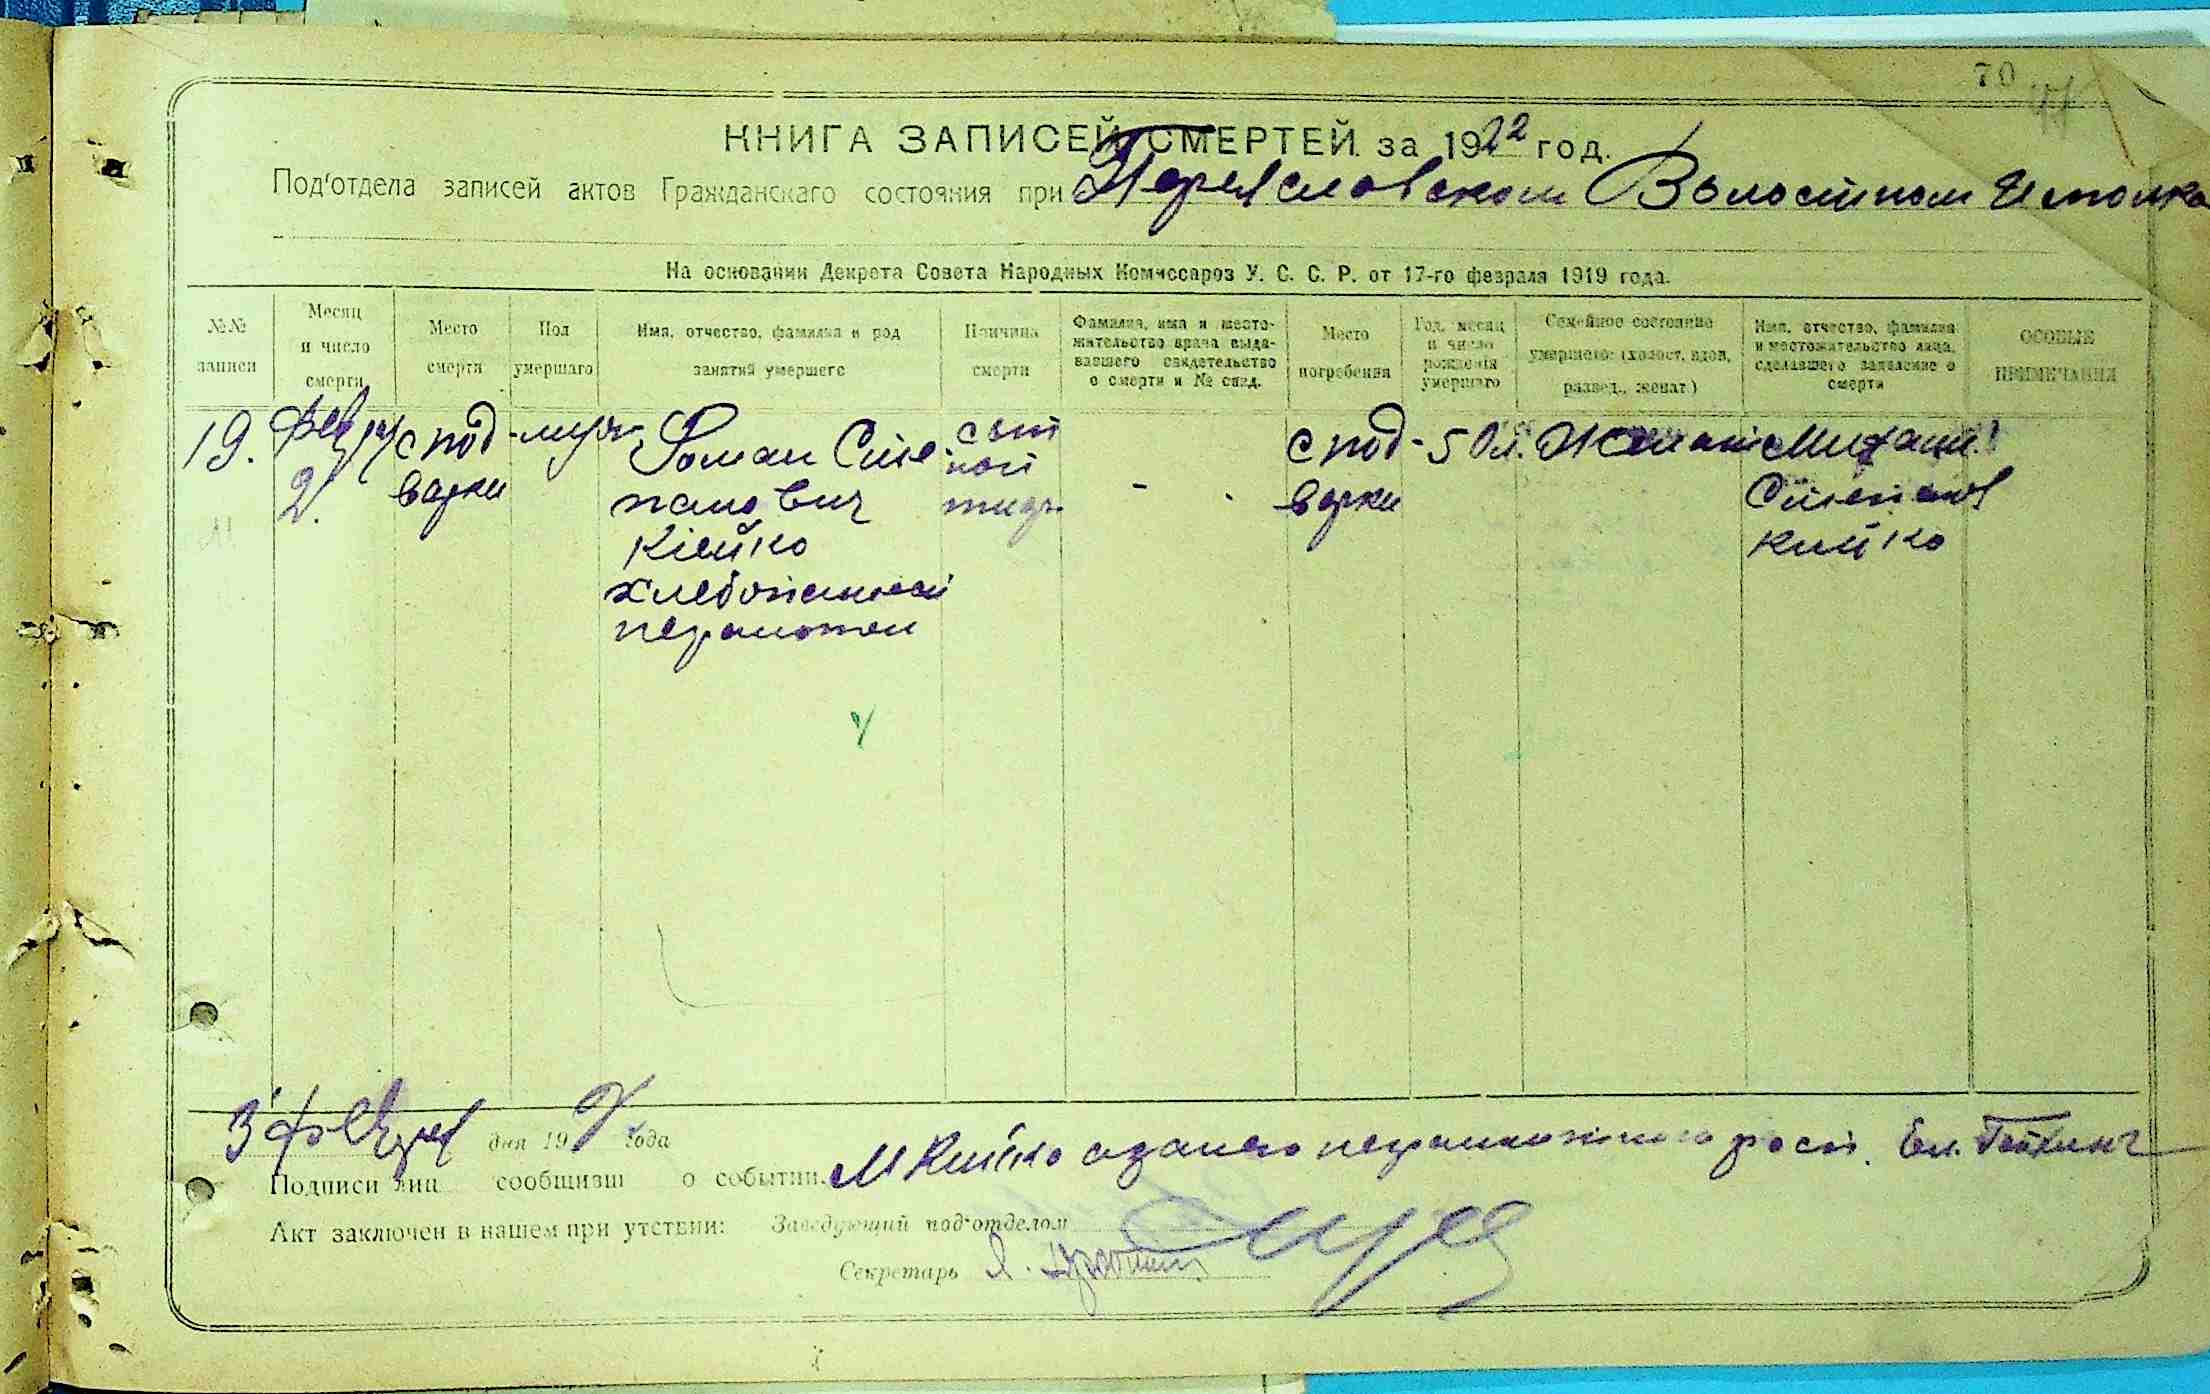 70
КНИГА ЗАПИСЕЙ СМЕРТЕЙ за 1922 год.
Под'отдела записей актов Гражданскаго состояния при Переяславском Волостном
На основании Декрета Совета Народных Комиссаров У. С. С. Р. от 17-го февраля 1919 года.
№№ записи
Месяц и число смерти
Место смерти
Пол умершаго
Имя, отчество, фамилия и род занятий умершего
Причина смерти
Фамилия, имя и место-жительство врача выда-вавшего свидетельство о смерти и № свид.
Место погребения
Год, месяц и число рождения умершаго
Семейное состояние умершего: (холост, вдов, развед., женат)
Имя, отчество, фамилия и местожительство лица, сделавшего заявление о смерти
ОСОБЫЕ ПРИМЕЧАНИЯ
19. 2. с под- муж. Роман Сте- сып с под- 50л. Женат Михаил
варки панович ной - варки Степанов
Кийко тиф. Кийко
хлебопашец
неграмотен
3 февраля дня 192 года
Подписи лиц сообщивш о событии. М Кийко а за него неграмотного росп.
Акт заключен в нашем при утствии: Заведующий под'отделом
Секретарь